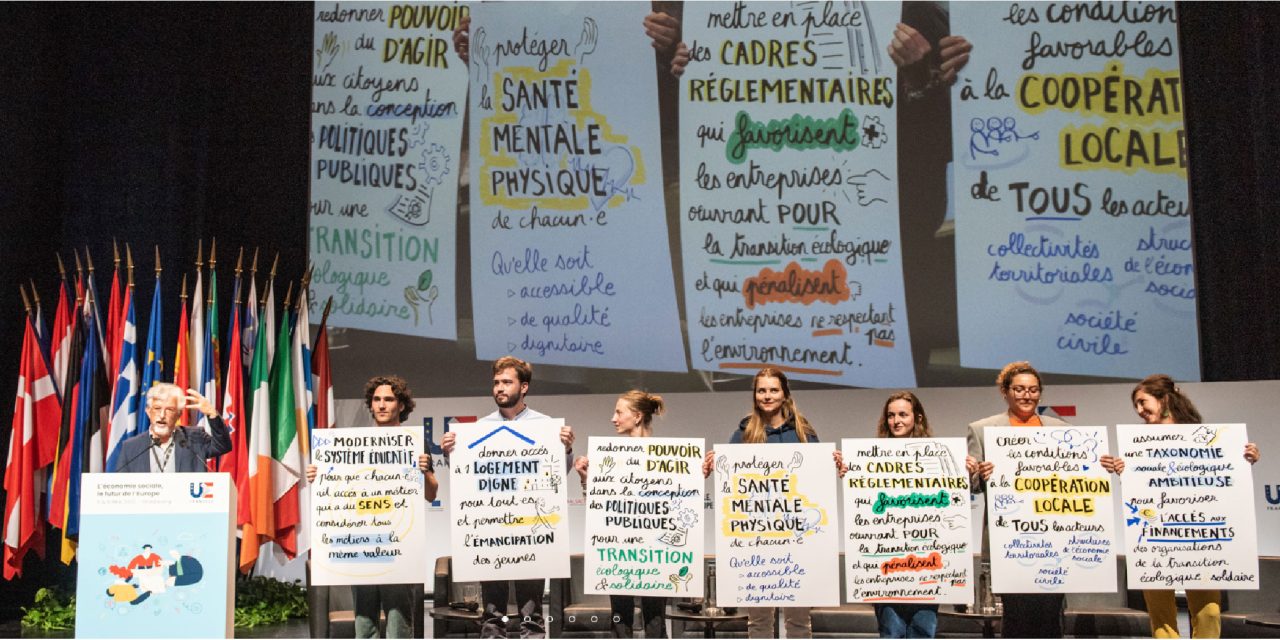 redonner POUVOIR
du D'AGIR
aux citoyens
dans la conception
POLITIQUES
PUBLIQUES
pour une
TRANSITION
écologique
& solidaire
protéger
la SANTÉ
MENTALE
PHYSIQUE
de chacun·e
Qu'elle soit
▹ accessible
▹ de qualité
▹ dignitaire
mettre en place
des CADRES
RÉGLEMENTAIRES
qui favorisent
les entreprises
œuvrant POUR
la transition écologique
et qui pénalisent
les entreprises ne respectant
pas
l'environnement.
les condition
favorables
à la COOPÉRAT
LOCALE
de TOUS les acteu
collectivités
territoriales
struc
de l'écono
socia
société
civile
L'économie sociale,
le futur de l'Europe
UE
MODERNISER
le SYSTÈME ÉDUCATIF
pour que chacun·e
ait accès à un métier
qui a du SENS et
considérer tous
les métiers à la
même valeur
donner accès
à 1 LOGEMENT
DIGNE
pour tout·es
et permettre
l'ÉMANCIPATION
des jeunes
redonner POUVOIR
du D'AGIR
aux citoyens
dans la conception
des POLITIQUES
PUBLIQUES
pour une
TRANSITION
écologique
& solidaire
protéger
la SANTÉ
MENTALE
PHYSIQUE
de chacun·e
Qu'elle soit
▹ accessible
▹ de qualité
▹ dignitaire
mettre en place
des CADRES
RÉGLEMENTAIRES
qui favorisent
les entreprises
œuvrant POUR
la transition écologique
et qui pénalisent
les entreprises ne respectant
pas
l'environnement.
créer les
conditions
favorables
à la COOPÉRATION
LOCALE
de TOUS les acteurs
collectivités
territoriales
structures
de l'économie
sociale
société
civile
assumer
une TAXONOMIE
sociale & écologique
AMBITIEUSE
pour favoriser
L'ACCÈS AUX
FINANCEMENTS
des organisations
de la transition
écologique & solidaire